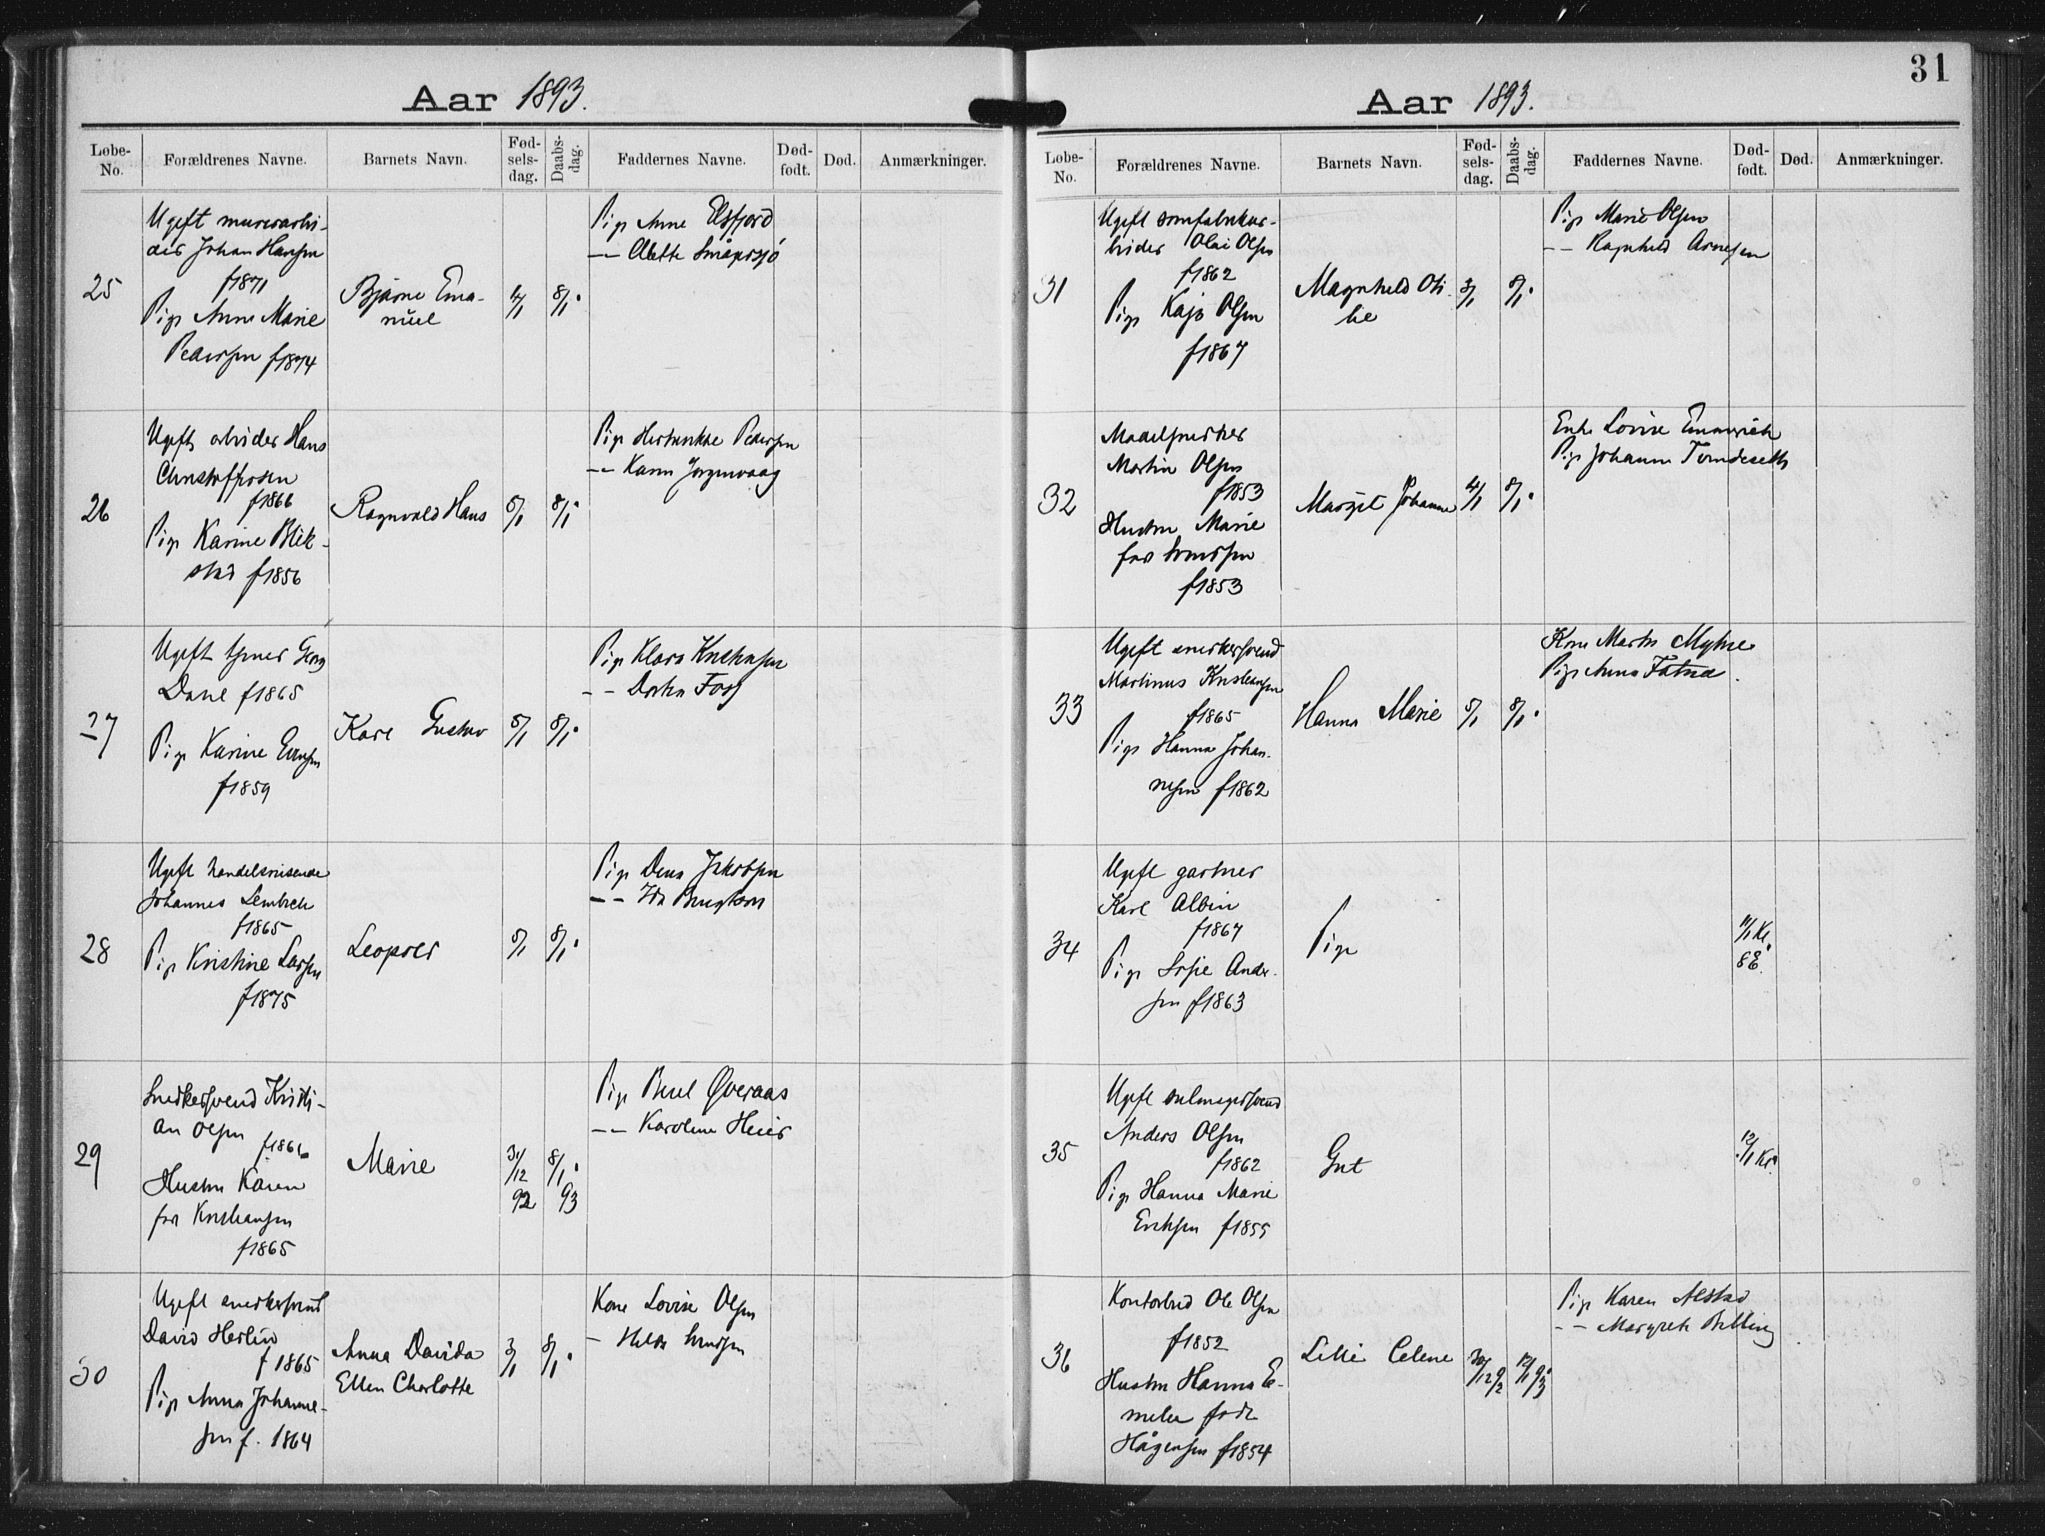 Aar 1893.
Løbe-No.
Forældrenes Navne.
Barnets Navn.
Fød-sels-dag.
Daabs-dag.
Faddernes Navne.
Død-født.
Død.
Anmærkninger.
25
Ugift murerarbi-
der Johan Hansen
f 1871
Pige Anna Marie
Pedersen f 1874
Bjarne Ema-
nuel
8/1
Pige Anne Elsfjord
-- Alette
26
Ugift arbider Hans
Christoffersen
f 1866
Pige Karine Blik-
stad f 1856
Ragnvald Hans
5/1
8/1
Pige Pedersen
-- Karen Jørgenvaag
27
Ugift Georg
Danel f 1865
Pige Karine Evensen
f 1859
Karl Gustav
5/1
8/1
Pige Klara Knehnsen
-- Dorthea Foss
28
Ugift handelsreisende
Johannes Lembech
f 1865
Pige Kristine Larsen
f 1875
Leopold
5/1
8/1
Pige Dina Jakobsen
-- Ida Bengtson
29
Snedkersvend Kristi-
an Olsen f 1866
Hustru Karen
for Kristiansen
f 1865
Marie
31/12 92
8/1 93
Pige Øveraas
-- Karoline Heier
30
Ugift snedkersvend
David Herlin
f 1865
Pige Anna Johanne-
sen f. 1864
Anna Davida
Ellen Charlotte
3/1
8/1
Kone Lovise Olsen
- Hilda
Aar 1893.
31
Løbe-No.
Forældrenes Navne.
Barnets Navn.
Fød-sels-dag.
Daabs-dag.
Faddernes Navne.
Død-født.
Død.
Anmærkninger.
31
Ugift sømfabrikar-
bider Olai Olsen
f 1862
Pige Kaja Olsen
f 1867
Magnhild Oti-
lie
3/1
8/1
Pige Marie Olsen
-- Ragnhild Arnesen
32
Modelsnedker
Martin Olsen
f 1853
Hustru Marie
for
f 1853
Margit Johanne
4/1
8/1
Enke Lovise Emmerich
Pige Johanne Tømdeseth
33
Ugift snedkersvend
Martinus Kristiansen
f 1865
Pige Hanna Johan-
nesen f 1862
Hanna Marie
5/1
8/1
Kone Martha Myhre
Pige Anna
34
Ugift gartner
Karl Albin
f 1867
Pige Sofie Ander-
sen f 1863
Pige
11/1 Kl.
8 E.
35
Ugift salmagersvend
Anders Olsen
f 1862
Pige Hanna Marie
Eriksen f 1855
Gut
12/1 Kl.
36
Kontorbud Ole Olsen
f 1852
Hustru Hanna E-
melie født
Hågensen f 1854
Lilli Celene
30/12 92
12/1 93
Pige Karen Alstad
-- Margrete Billing